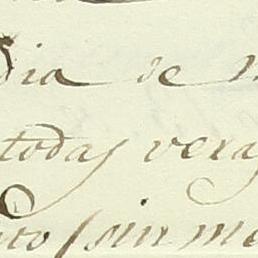 dia se
todas veras
nto sin me